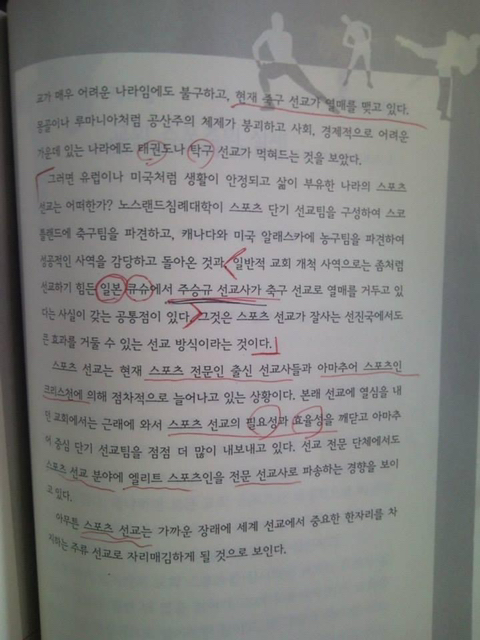 교가 매우 어려운 나라임에도 불구하고, 현재 축구 선교가 열매를 맺고 있다.
몽골이나 루마니아처럼 공산주의 체제가 붕괴하고 사회, 경제적으로 어려운
가운데 있는 나라에도 태권도나 탁구 선교가 먹혀드는 것을 보았다.
그러면 유럽이나 미국처럼 생활이 안정되고 삶이 부유한 나라의 스포츠
선교는 어떠한가? 노스랜드침례대학이 스포츠 단기 선교팀을 구성하여 스코
틀랜드에 축구팀을 파견하고, 캐나다와 미국 알래스카에 농구팀을 파견하여
성공적인 사역을 감당하고 돌아온 것과, 일반적 교회 개척 사역으로는 좀처럼
선교하기 힘든 일본 큐슈에서 주승규 선교사가 축구 선교로 열매를 거두고 있
다는 사실이 갖는 공통점이 있다. 그것은 스포츠 선교가 잘사는 선진국에서도
큰 효과를 거둘 수 있는 선교 방식이라는 것이다.
스포츠 선교는 현재 스포츠 전문인 출신 선교사들과 아마추어 스포츠인
크리스천에 의해 점차적으로 늘어나고 있는 상황이다. 본래 선교에 열심을 내
던 교회에서는 근래에 와서 스포츠 선교의 필요성과 효율성을 깨닫고 아마추
어 중심 단기 선교팀을 점점 더 많이 내보내고 있다. 선교 전문 단체에서도
스포츠 선교 분야에 엘리트 스포츠인을 전문 선교사로 파송하는 경향을 보이
고 있다.
아무튼 스포츠 선교는 가까운 장래에 세계 선교에서 중요한 한자리를 차
지하는 주류 선교로 자리매김하게 될 것으로 보인다.